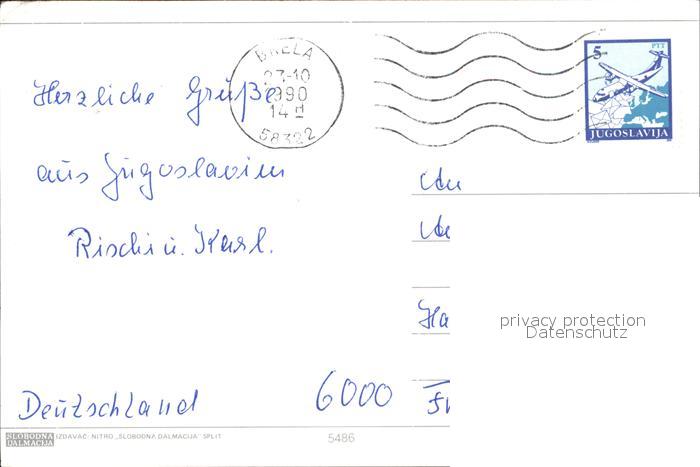 BRELA
27-10
1990
14 d
58322
5
PTT
JUGOSLAVIJA
Herzliche Grüße
aus Jugoslawien
Rischi u. Karl.
An
Ha
privacy protection
Datenschutz
Deutschland 6000 Fr
SLOBODNA DALMACIJA IZDAVAČ: NITRO „SLOBODNA DALMACIJA" SPLIT
5486